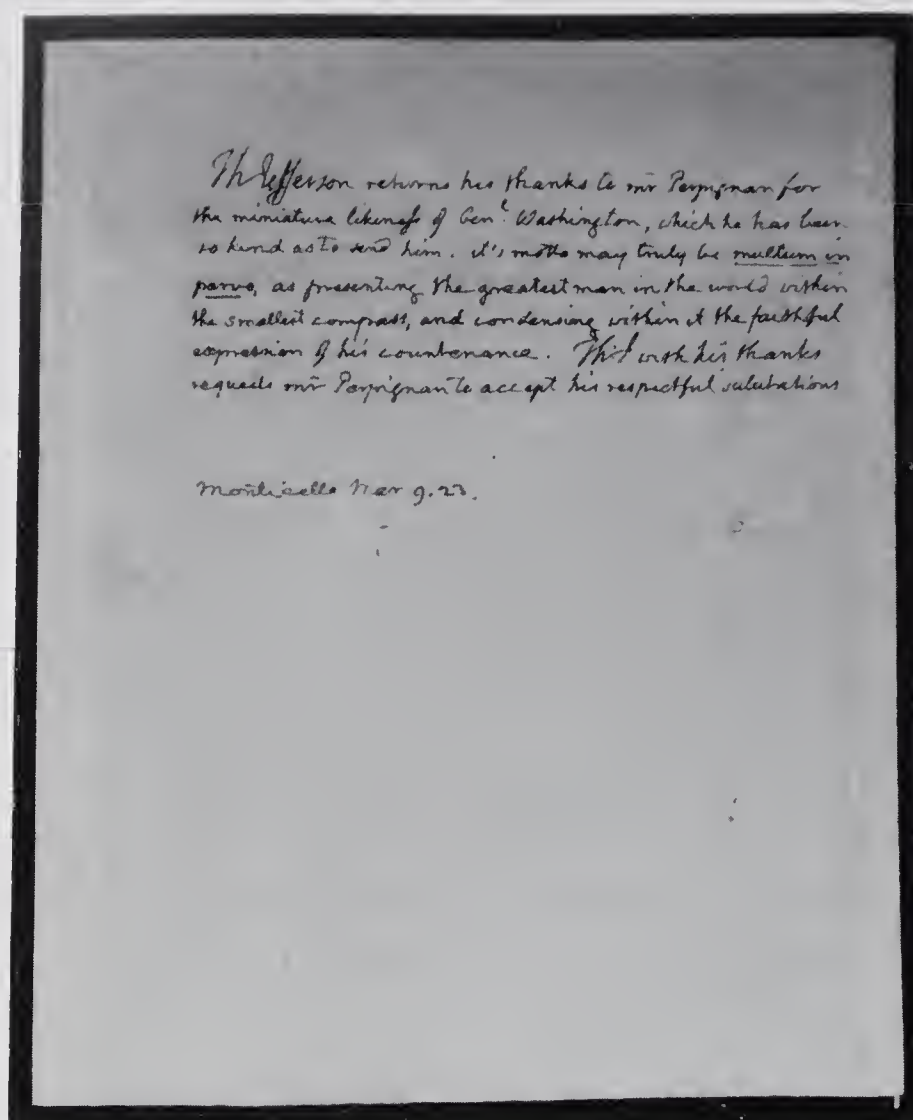 Th Jefferson returns his thanks to mr Perpignan for
the miniature likeness of Genl. Washington, which he has been
so kind as to send him. it's motto may truly be multum in
parvo, as presenting the greatest man in the world within
the smallest compass, and condensing within it the faithful
expression of his countenance. Th J with his thanks
requests mr Perpignan to accept his respectful salutations
Monticello Mar 9. 23.